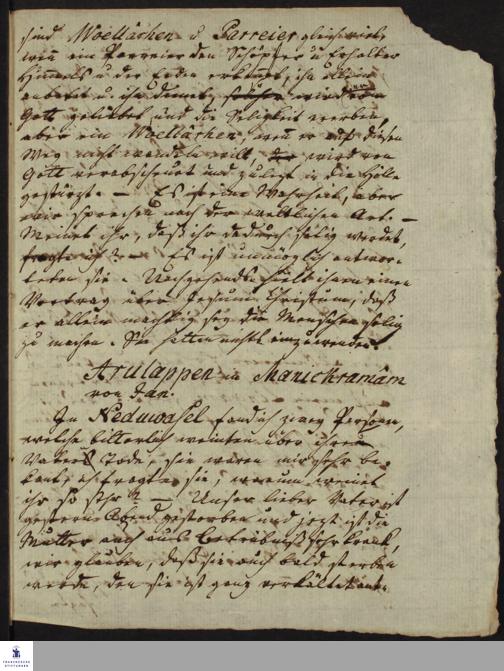 sind Woellachen u Parreier gleich viel,
wenn ein Parreier den Schöpfer u Erhalter
Himmels u der Erden erkennt, ihn allein
anbetet u. ihm dienet, wird er von
Gott geliebet, und die Seligkeit ererben,
aber ein Woellachen, wenn er auf diesen
Weg nicht wandeln will, wird von
Gott verabscheuet und zuletzt in die Hölle
gestürzt. — Es ist eine Wahrheit, aber
wir sprechen nach der weltlichen Art. —
Meinet ihr, daß ihr dadurch selig werdet,
fragte ich? — Es ist unmöglich antwor-
teten sie. Nachgehends hielt ihnen einen
Vortrag über Jesum Christum, daß
er allein mächtig sey die Menschen selig
zu machen. Sie hatten nichts einzuwenden.
Arulappen in Manickramam
von Jan.
In Neduwasel fand ich zwey Persoen,
welche bitterlich weinten über ihren
Vaters Tode, sie waren mir sehr be-
kant, ich fragte sie, warum weinet
ihr so sehr? — Unser lieber Vater ist
gestern Abend gestorben und jetzt ist die
Mutter auch aus Betrübniß sehr krank,
wir glauben, daß sie auch bald sterben
werde, den sie ist ganz verkältet
FRANCKESCHE
STIFTUNGEN